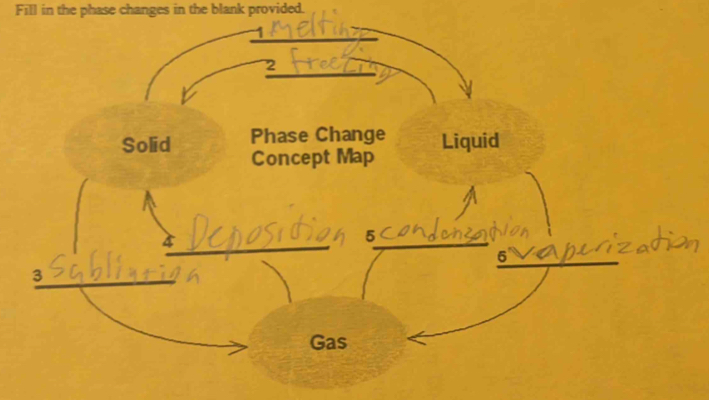 Fill in the phase changes in the blank provided.
1 melting
2 freezing
Solid
Phase Change
Concept Map
Liquid
4 Deposition
5 condenzation
6 vaperization
3 Sublimtion
Gas